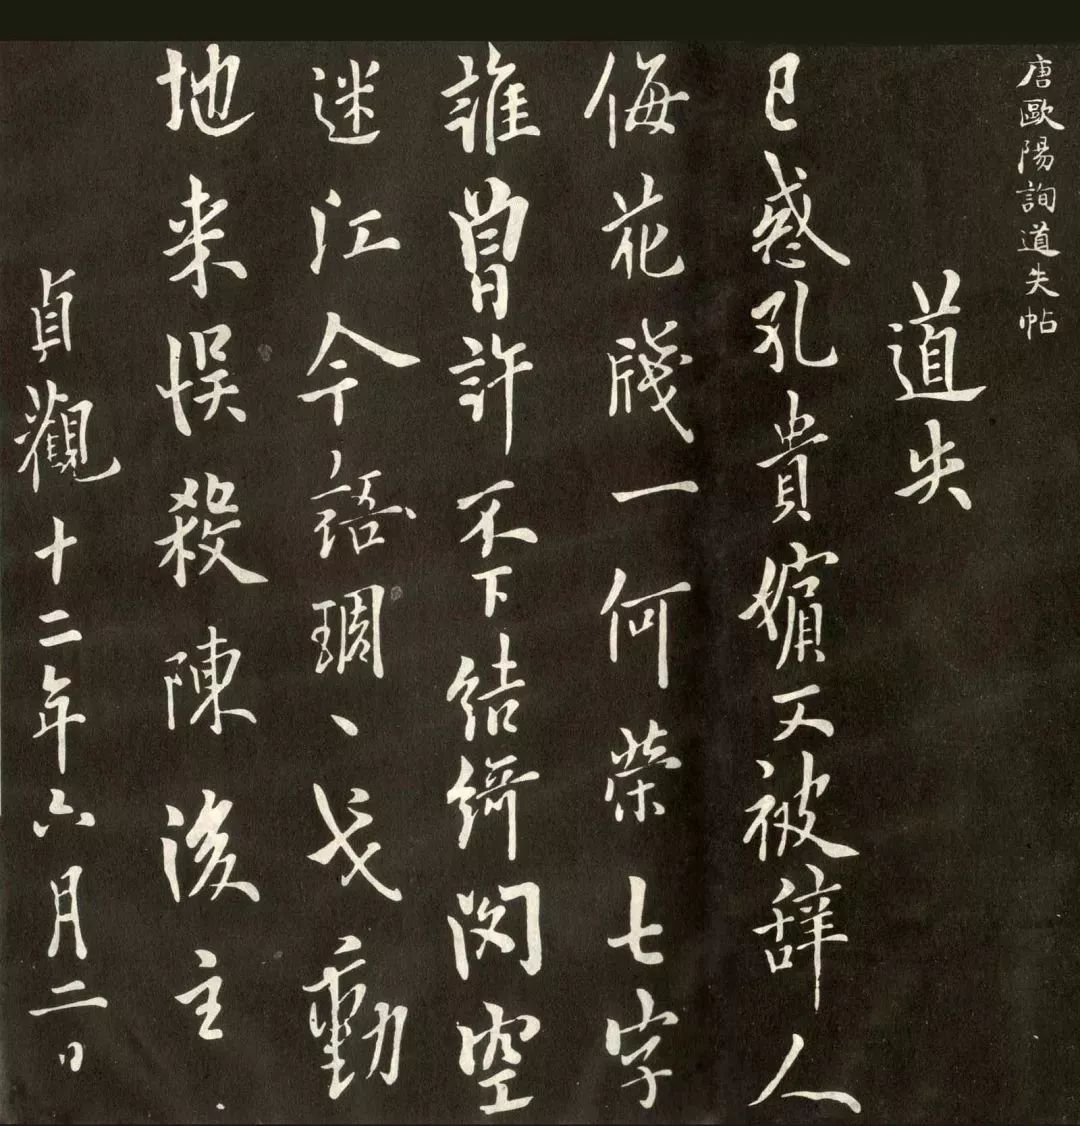 唐歐陽詢道失帖
道失
已惑孔貴嬪又被辭人
侮花牋一何榮七字
誰曾許不下結綺閣空
迷江令語琱戈動
地来悮殺陳後主
貞觀十二年六月二日